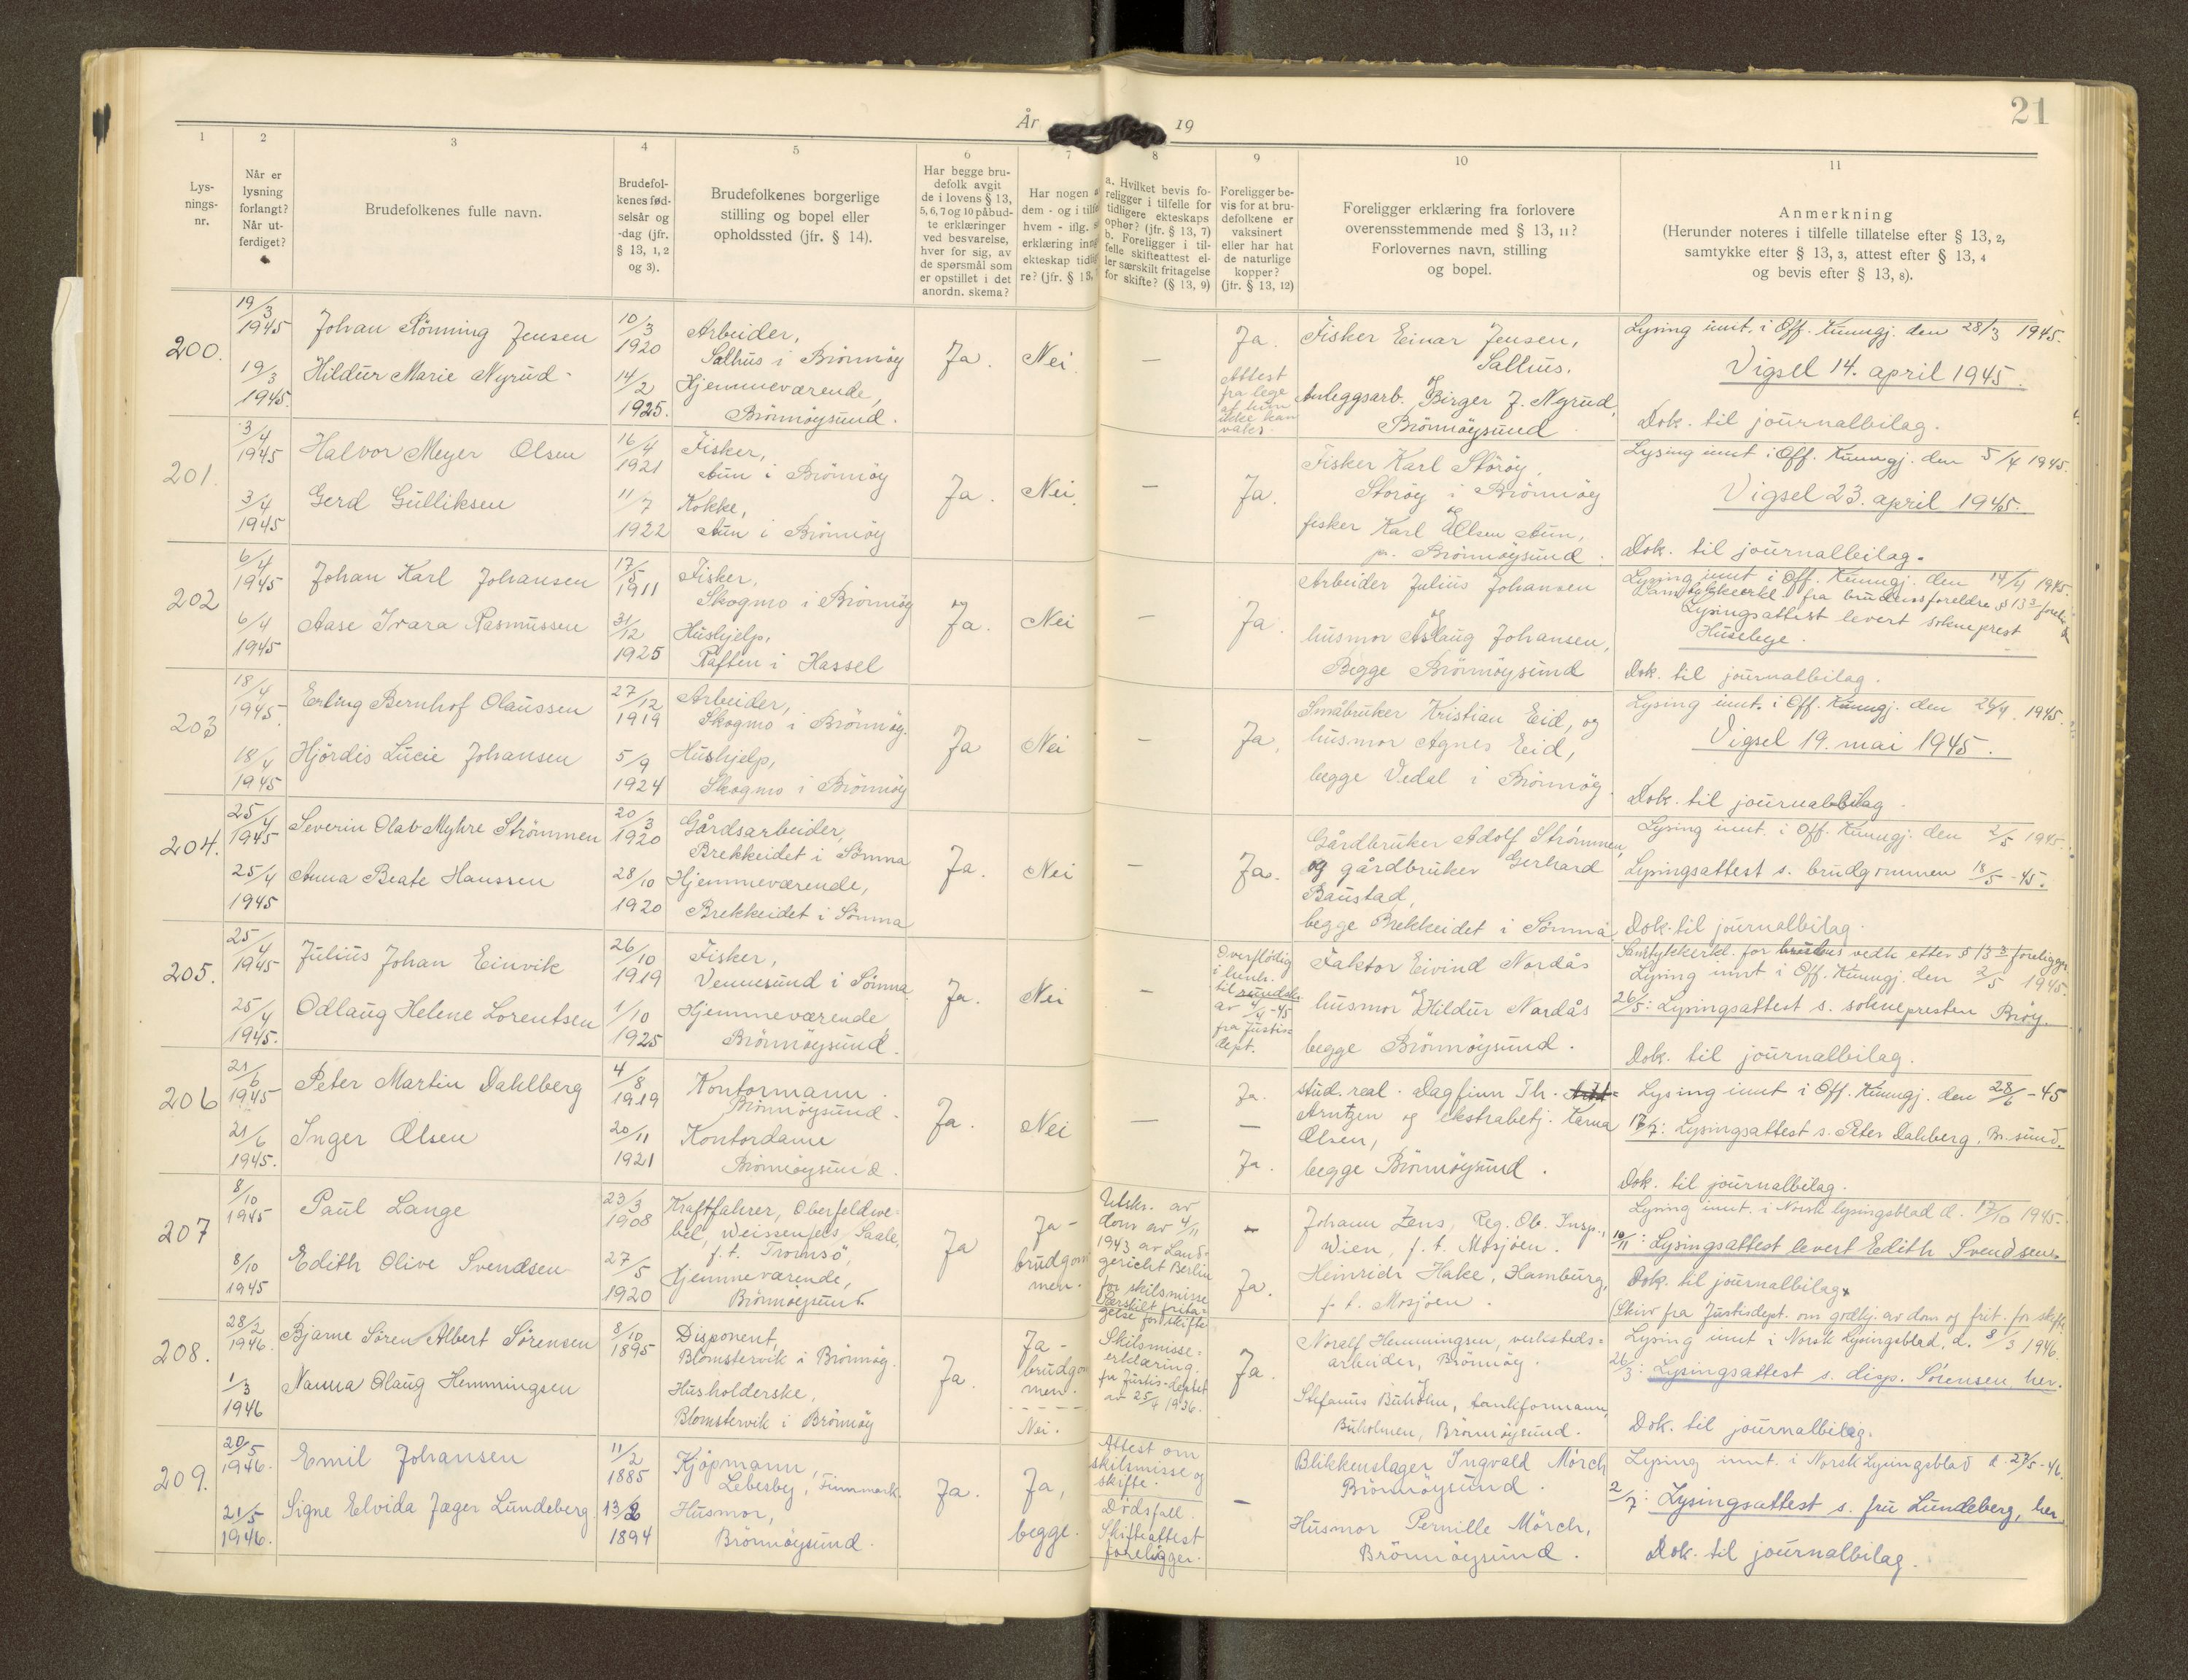 21
År 19
1
2
3
4
5
6
7
8
9
10
11
Lys-
nings-
nr.
Når er
lysning
forlangt?
Når ut-
ferdiget?
Brudefolkenes fulle navn.
Brudefol-
kenes fød-
selsår og
-dag (jfr.
§ 13, 1, 2
og 3).
Brudefolkenes borgerlige
stilling og bopel eller
opholdssted (jfr. § 14).
Har begge bru-
defolk avgit
de i lovens § 13,
5, 6, 7 og 10 påbud-
te erklæringer
ved besvarelse,
hver for sig, av
de spørsmål som
er opstillet i det
anordn. skema?
Har nogen a
dem - og i tilfe
hvem - iflg.
erklæring inn
ekteskap tidl
re? (jfr. § 13,
a. Hvilket bevis fo-
religger i tilfelle for
tidligere ekteskaps
ophør? (jfr. § 13, 7)
b. Foreligger i til-
felle skifteattest el-
ler særskilt fritagelse
for skifte? (§ 13, 9)
Foreligger be-
vis for at bru-
defolkene er
vaksinert
eller har hat
de naturlige
kopper?
(jfr. § 13, 12)
Foreligger erklæring fra forlovere
overensstemmende med § 13, 11?
Forlovernes navn, stilling
og bopel.
Anmerkning
(Herunder noteres i tilfelle tillatelse efter § 13, 2,
samtykke efter § 13, 3, attest efter § 13, 4
og bevis efter § 13, 8).
200.
19/3
1945
Johan Rönning Jensen
10/3
1920
Arbeider,
Salhus i Brönnöy
19/3
1945.
Hildur Marie Nyrud
14/2
1925.
Hjemmeværende,
Brönnöysund.
Ja.
Nei
—
Ja.
Attest
fra lege
at hun
ikke kan
Fisker Einar Jensen,
Salhus.
og
Anleggsarb. Birger J. Nyrud,
Brönnöysund
Lysing innt. i Off. Kunngj. den 28/3 1945.
Vigsel 14. april 1945.
Dok. til journalbilag.
201.
3/4
1945
Halvor Meyer Olsen
16/4
1921
Fisker,
Aun i Brönnöy
3/4
1945
Gerd Gulliksen
11/7
1922
Kokke,
Aun i Brönnöy
Ja.
Nei.
—
Ja.
Fisker Karl Storöy,
Storöy i Brönnöy
og
fisker Karl Olsen Aun,
pr. Brönnöysund.
Lysing innt i Off. Kunngj. den 5/4 1945.
Vigsel 23. april 1945.
Dok. til journalbilag.
202
6/4
1945
Johan Karl Johansen
17/5
1911
Fisker,
Skogmo i Brönnöy
6/4
1945
Aase Ivara Rasmussen
31/12
1925
Hushjelp,
Raften i Hassel
Ja.
Nei
—
Ja.
Arbeider Julius Johansen
og
husmor Aslaug Johansen,
Begge Brönnöysund
Lysing innt i Off. Kunngj. den 14/4 1945.
fra brudens foreldre § 13 3
Lysingsattest levert sokneprest
Huseleye.
Dok. til journalbilag.
203
18/4
1945
Erling Bernhof Olaussen
27/12
1919
Arbeider,
Skogmo i Brönnöy.
18/4
1945
Hjördis Lucie Johansen
5/9
1924
Hushjelp,
Skogmo i Brönnöy
Ja
Nei
—
Ja,
Småbruker Kristian Eid, og
husmor Agnes Eid,
begge Vedal i Brönnöy.
Lysing innt. i Off. Kunngj. den 26/4. 1945.
Vigsel 19. mai 1945.
Dok. til journalbilag.
204.
25/4
1945
Severin Olab Myhre Strömmen
20/3
1920
Gårdsarbeider,
Brekkeidet i Sömna
25/4
1945
Anna Beate Hanssen
28/10
1920
Hjemmeværende,
Brekkeidet i Sömna
Ja.
Nei
—
Ja.
Gårdbruker Adolf Strömmen,
og gårdbruker Gerhard
Baustad,
begge Brekkeidet i Sömna
Lysing innt. i Off. Kunngj. den 2/5 1945.
Lysingsattest s. brudgommen 18/5-45.
Dok. til journalbilag.
205.
25/4
1945
Julius Johan Einvik
26/10
1919
Fisker,
Vennesund i Sömna
25/4
1945.
Odlaug Helene Lorentsen
1/10
1925
Hjemmeværende
Brönnöysund.
Ja.
Nei
—
Overflödig
i henh.
til rundskr.
av 4/4-45
fra Justis-
dept.
Faktor Eivind Nordås
og
husmor Hildur Nordås
begge Brönnöysund.
Samtykkeerkl. for brudens vedk. etter § 13 3 foreligger
Lysing innt i Off. Kunngj. den 2/5 1945.
26/5: Lysingsattest s. soknepresten Bröy.
Dok. til journalbilag.
206
21/6
1945
Peter Martin Dahlberg
4/8
1919
Kontormann.
Brönnöysund.
21/6
1945.
Inger Olsen
20/11
1921
Kontordame
Brönnöysund.
Ja.
Nei
—
Ja.
—
Ja.
stud. real. Dagfinn Th.
Arntzen og ekstrabetj. Karna
Olsen,
begge Brönnöysund.
Lysing innt i Off. Kunngj. den 28/6-45
17/7: Lysingsattest s. Peter Dahlberg, Br.sund.
Dok. til journalbilag.
207
8/10
1945
Paul Lange
23/3
1908
Kraftfahrer, Oberfeldwe-
bel, Weissenfels, Saale,
f.t. Tromsö,
8/10
1945
Edith Olive Svendsen
27/5
1920
Hjemmeværende,
Brönnöysund.
Ja
Ja -
brudgom
men.
Utskr. av
dom av 4/11
1943 av Land-
gericht Berlin
for skilsmisse
Særskilt frita-
gelse for skifte
—
Ja.
Johann Zens, Reg. Ob. Insp.,
Wien, f.t. Mosjöen.
Heinrich Hake, Hamburg,
f.t. Mosjöen.
Lysing innt. i Norsk lysingsblad d. 17/10 1945.
10/11: Lysingsattest levert Edith Svendsen.
Dok. til journalbilag
(Skriv fra Justisdept. om godkj. av dom og frit. for skifte
208.
28/2
1946.
Bjarne Sören Albert Sörensen
8/10
1895
Disponent,
Blomstervik i Brönnöy.
1/3
1946
Nanna Olaug Hemmingsen
Husholderske,
Blomstervik i Brönnöy
Ja.
Ja -
brudgo
men.
Nei.
Skilsmisse-
erklæring
fra Justis-deptet
av 25/4 1936.
Ja.
Noralf Hemmingsen, verksteds-
arbeider, Brönnöy.
og
Stefanus Buholm, tankformann,
Buholmen, Brönnöysund.
Lysing innt i Norsk Lysingsblad, d. 8/3 1946.
26/3: Lysingsattest s. disp. Sörensen, her.
Dok. til journalbilag.
209.
20/5
1946.
Emil Johansen
11/2
1885
Kjöpmann,
Lebesby, Finnmark.
21/5
1946.
Signe Elvida Jæger Lundeberg
13/8
1894
Husmor,
Brönnöysund.
Ja.
Ja,
begge.
Attest om
skilsmisse og
skifte.
Dödsfall.
Skifteattest
foreligger.
—
Blikkenslager Ingvald Mörch
Brönnöysund.
Husmor Pernille Mörch,
Brönnöysund.
Lysing innt. i Norsk Lysingsblad d. 27/5-46.
2/7: Lysingsattest s. fru Lundeberg, her
Dok. til journalbilag.